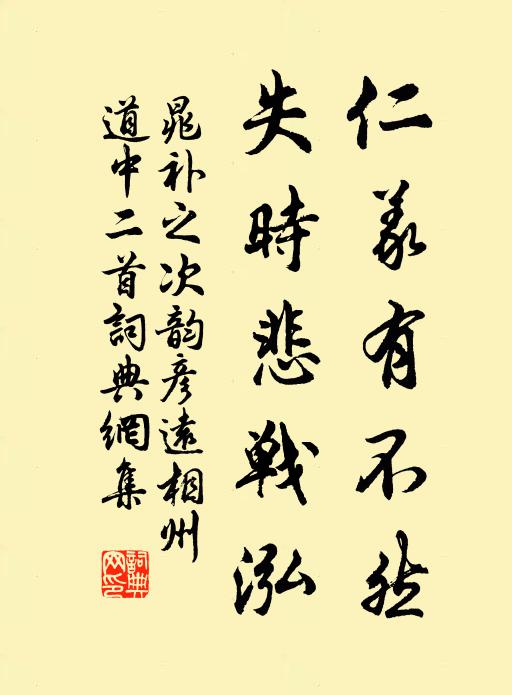 仁義有不然
失時悲戰泓
晁補之次韵彦遠相州
道中二首詞典網集
詞典网印